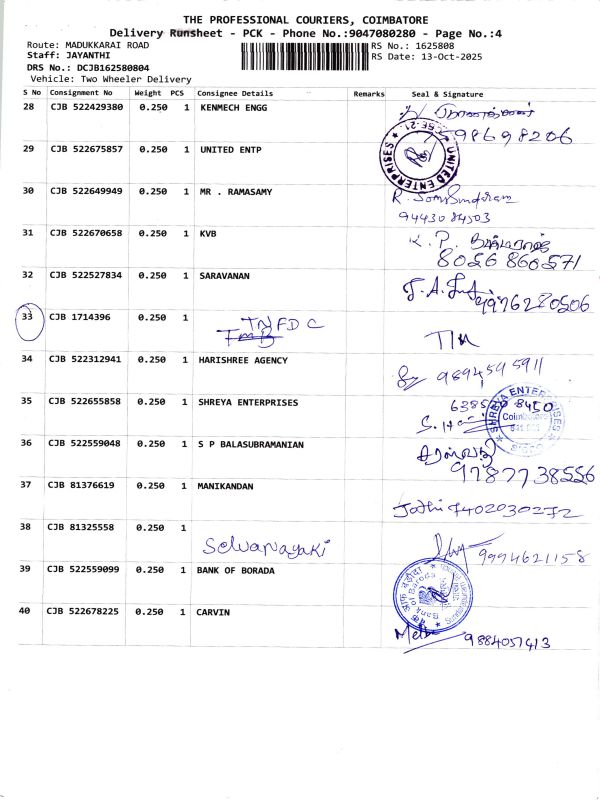 THE PROFESSIONAL COURIERS, COIMBATORE
Delivery Runsheet - PCK - Phone No.:9047080280 - Page No.:4
Route: MADUKKARAI ROAD
RS No.: 1625808
Staff: JAYANTHI
RS Date: 13-Oct-2025
DRS No.: DCJB162580804
Vehicle: Two Wheeler Delivery
S No Consignment No Weight PCS Consignee Details Remarks Seal & Signature
28 CJB 522429380 0.250 1 KENMECH ENGG
598698206
29 CJB 522675857 0.250 1 UNITED ENTP
UNITED ENTERPRISES
30 CJB 522649949 0.250 1 MR . RAMASAMY
R. Somsundaram
9443084503
31 CJB 522670658 0.250 1 KVB
K. P.
8056860571
32 CJB 522527834 0.250 1 SARAVANAN
9976280506
33 CJB 1714396 0.250 1
TNFDC
34 CJB 522312941 0.250 1 HARISHREE AGENCY
9894595911
35 CJB 522655858 0.250 1 SHREYA ENTERPRISES
SHREYA ENTERPRISES
Coimbatore
36 CJB 522559048 0.250 1 S P BALASUBRAMANIAN
9787738556
37 CJB 81376619 0.250 1 MANIKANDAN
Jothi 7402030272
38 CJB 81325558 0.250 1
Selvanayaki
9994621158
39 CJB 522559099 0.250 1 BANK OF BORADA
Bank of Baroda
40 CJB 522678225 0.250 1 CARVIN
9884051413